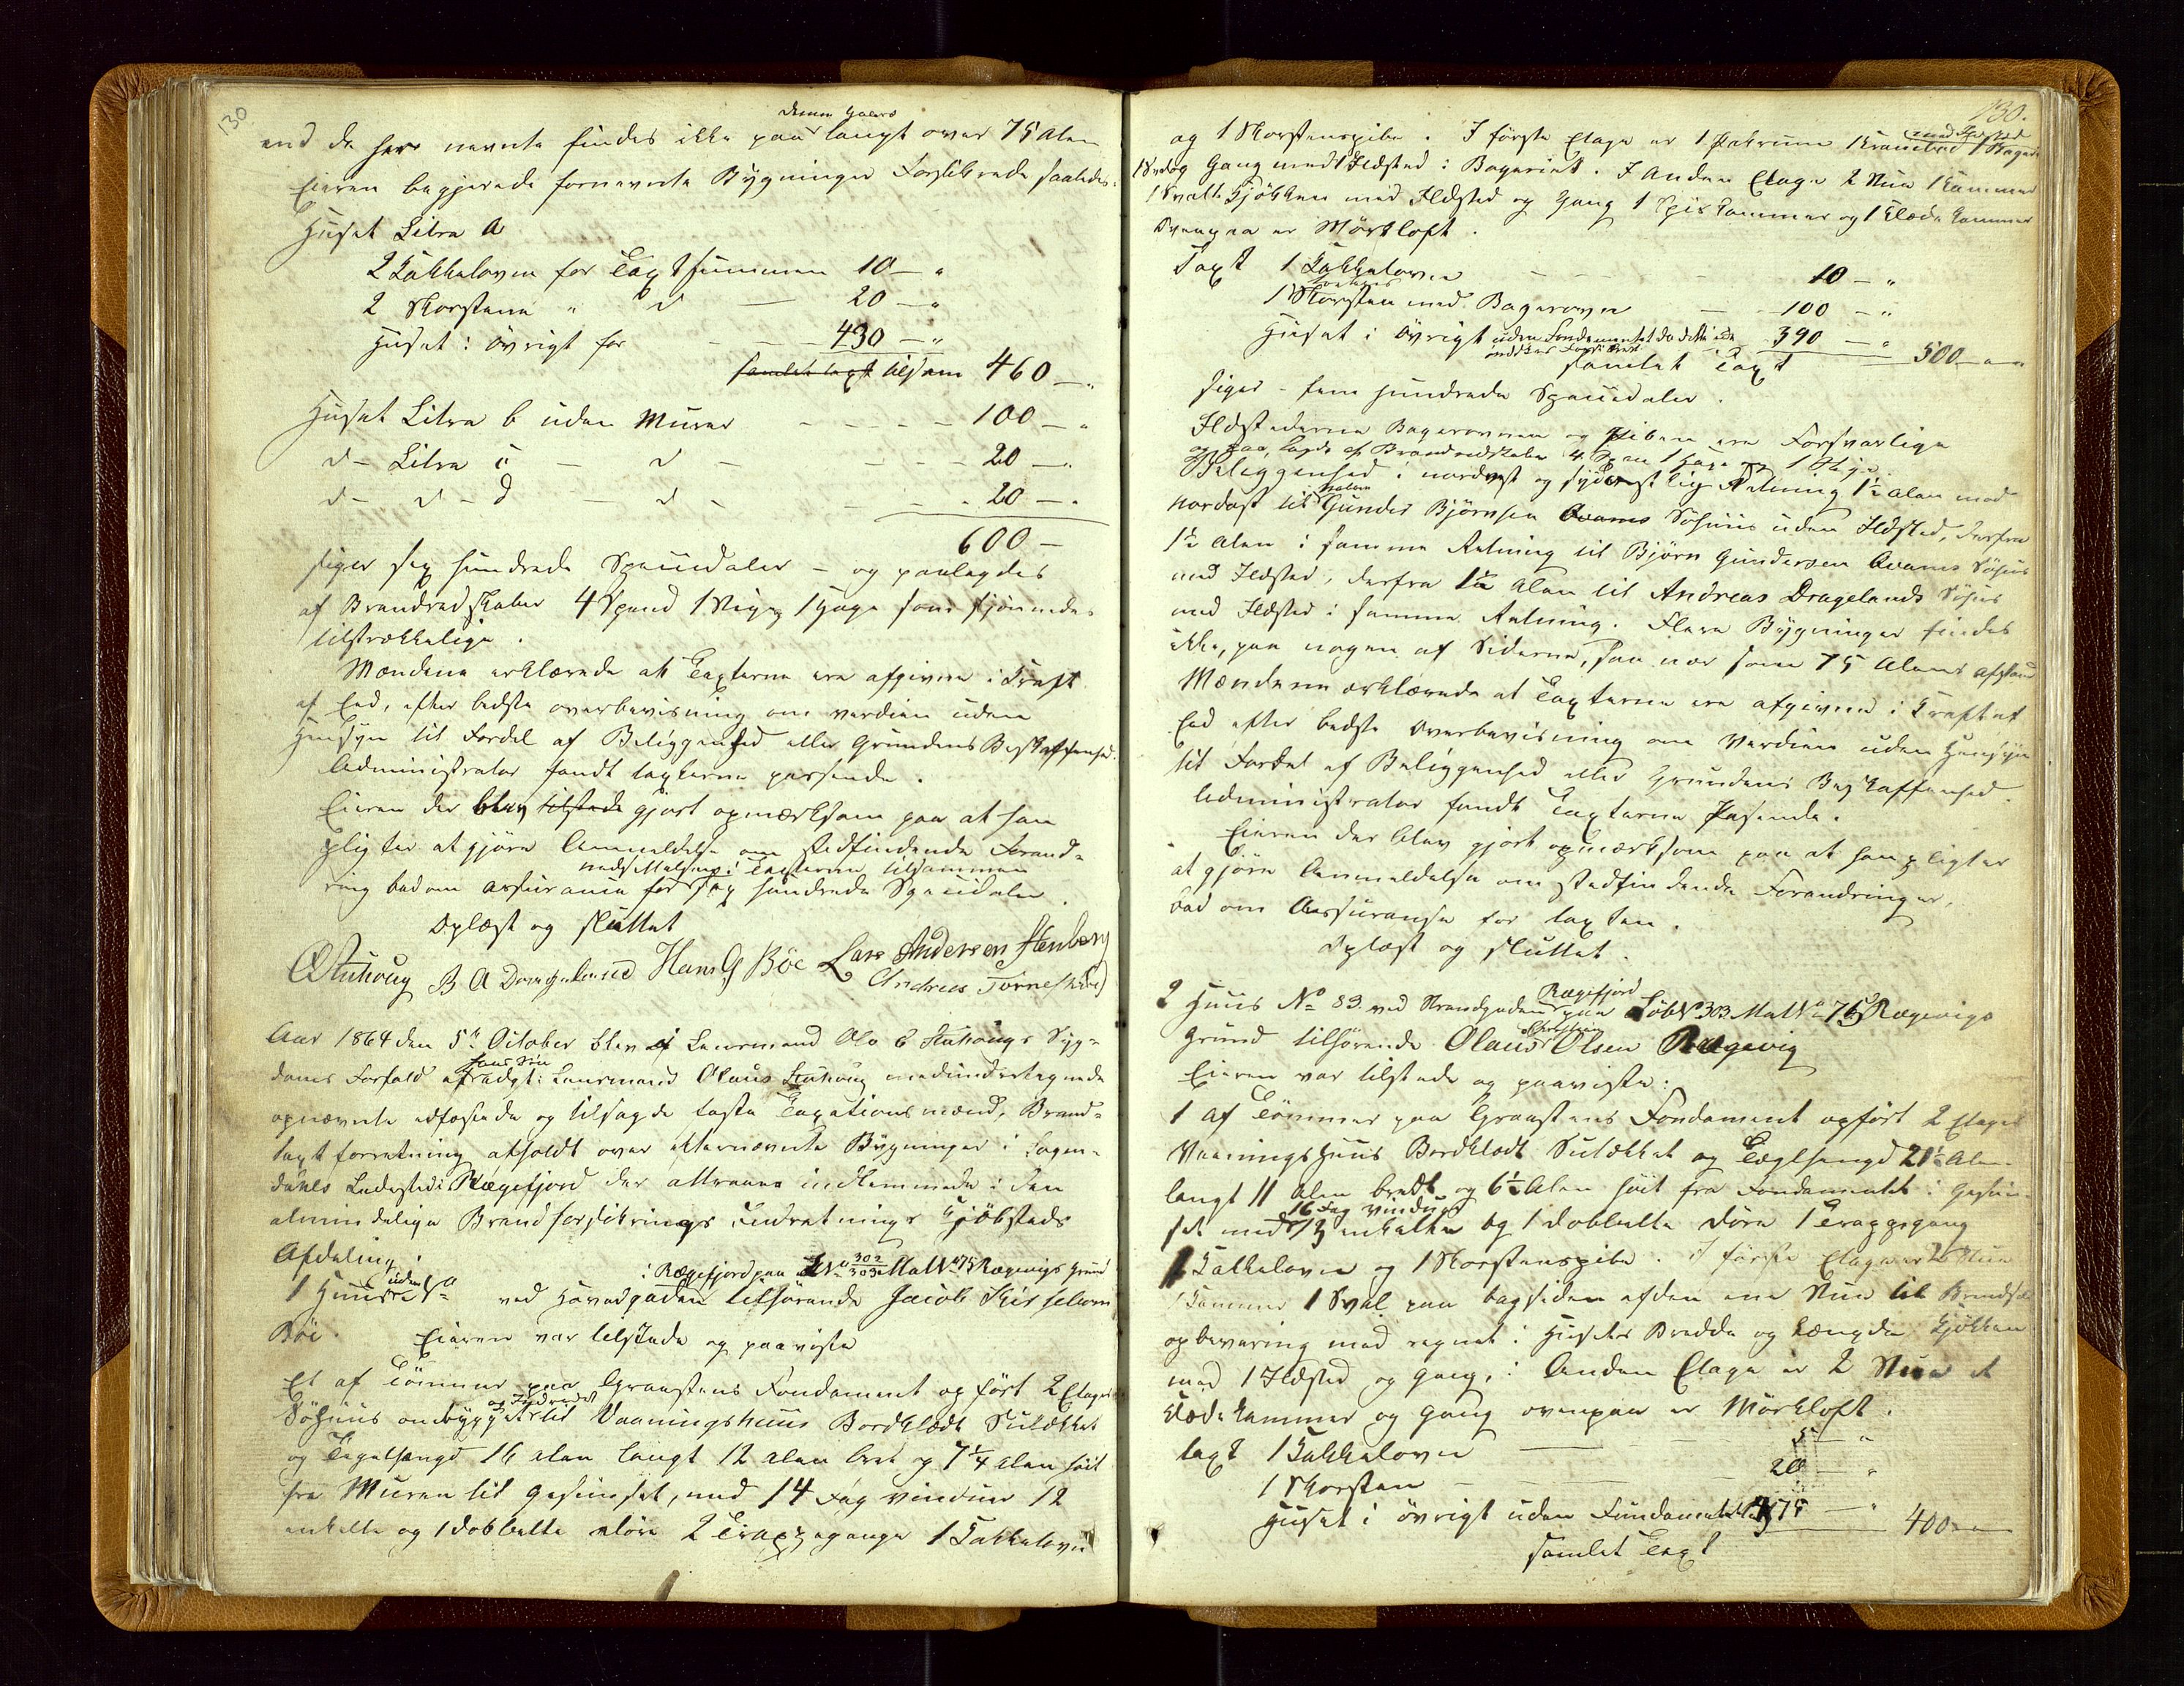 130.
end de her nevnte findes ikke paa denne Gaard langt over 75 Alen
Eieren begjerede fornevnte Bygninger Forsikrede saaledes.
Huset Litra A
2 Kakkelovne for Taxtsummen 10 — "
2 Skorstene " d — 20 — "
Huset i øvrigt for — — 430 — "
samlet taxt tilsam 460 — "
Huset Litra b uden Murer — — — — 100 — "
d — Litra c — d — — — — 20 — "
d — d — d — d — — — — 20 — "
600 —
siger sex hundrede Speciedaler — og paalagdes
af Brandredskaber 4 Spand 1 Stige 1 Hage som skjønnedes
tilstrækkelige.
Mændene erklærede at Taxterne ere afgivne i Kraft
af Eed, efter bedste overbevisning om verdien uden
Hensyn til Fordel af Beliggenhed eller Grundens Beskaffenhed.
Administrator fandt taxterne passende.
Eieren der blev tilstede gjort opmærksom paa at han
pligter at gjøre Anmeldelse om stedfindende Forand-
ring bad om assurance for sex hundrede Speciedaler.
Oplæst og sluttet
B A Drageland Hans G Böe Lars Andersen Stenberg
Andreas Torneskar
Aar 1864 den 5te October blev af Lensmand Ole E Auhougs Syg-
doms Forfald afradgt: Lensmand Olaus Auhoug medundertegnede
opnævnte edfæstede og tilsagde faste Taxationsmænd, Brand-
taxt forretning afholdt over efternævnte Bygninger i Sogn-
dahls Ladested i Rægefjord der attraaes indlemmede i den
almindelige Brandforsikrings Indretnings Kjøbsteds
Afdeling.
i Rægefjord paa LNo 302/303 MatNo 75 Rægevigs Grund
1 Huus uden No ved Hovedgaden tilhørende Jacob
Böe. Eieren var tilstede og paaviste
Et af Tømmer paa Graastens Fondament opført 2 Etages
Søhuus ombygget og Indredet til Vaaningshuus Bordklædt
og Tegelhængt 16 alen langt 12 alen bret og 7 1/4 alen høit
fra Muren til Gesimset, med 14 Fag vinduer 12
enkelte og 1 dobbelte døre 2 Trappegange 1 Kakkelovn
130.
og 1 Skorstenspibe. I første Etage er 1 Pakrum 1 Krambod 1 Bageri
Gang med 1 Ildsted i Bageriet. I Anden Etage 2 Stue 1 Kammer
1 Svale Kjøkken med Ildsted og Gang 1 Spiskammer og 1 Klædekammer
Ovenpaa er Mørkloft.
Taxt 1 Kakkelovn — — — 10 — "
1 Skorsten med Bagerovn — 100 — "
Huset i øvrigt uden Fondamentet da dette ikke 390 — "
samlet Taxt 500 — "
siger — fem hundrede Speciedaler.
Ildstederne Bagerovnen og Piben ere Forsvarlige
og paalagdes af Brandredskaber 4 Spand 1 Hage og 1 Stige.
Beliggenhed i nordvest og sydøstlig Retning 1 1/2 alen mod
nordost til Gunder Bjørnsen Avams Søhuus uden Ildsted, derfra
1 1/2 alen i samme Retning til Bjørn Gundersen Avams Søhus
med Ildsted, derfra 1 1/2 Alen til Andreas Dragelands Søhus
med Ildsted i samme Retning. Flere Bygninger findes
ikke, paa nogen af Siderne, saa nær som 75 Alens afstand
Mændene erklærede at Taxterne ere afgivne i Kraft af
Eed efter bedste Overbevisning om Verdien uden Hensyn
til Fordel af Beliggenhed eller Grundens Beskaffenhed.
Administrator fandt Taxterne Passende.
Eieren der blev gjort opmærksom paa at han pligter
at gjøre Anmeldelse om stedfindende Forandringer,
bad om Assurance for taxten.
Oplæst og sluttet.
2 Huus No 83 ved Strandgaden i Rægefjord paa LøbNo 303 MatNo 75 Rægevigs
Grund tilhørende Olaus Olsen Rægevig
Eieren var tilstede og paaviste:
1 Af Tømmer paa Graastens Fondament opført 2 Etages
Vaaningshuus Bordklædt og Tæglhængt 21 1/2 Alen
langt 11 Alen bredt og 6 1/2 Alen høit fra Fondamentet i Gesim-
set med 16 Fag Vinduer 13 enkelte og 1 dobbelte døre 1 Trappegang
1 Kakkelovn og 1 Skorstenspibe. I første Etage er 2 Stue
1 Kammer 1 Sval paa bagsiden af den ene Stue til Brendsels
opbevaring med regnet i Husets Bredde og Længde Kjøkken
med 1 Ildsted og Gang, i Anden Etage er 2 Stuer et
Klædekammer og Gang ovenpaa er Mørkloft.
taxt 1 Kakkelovn — 5 — "
1 Skorsten — — 20 — "
Huset i øvrigt uden Fundamentet 375 — "
samlet Taxt 400 —